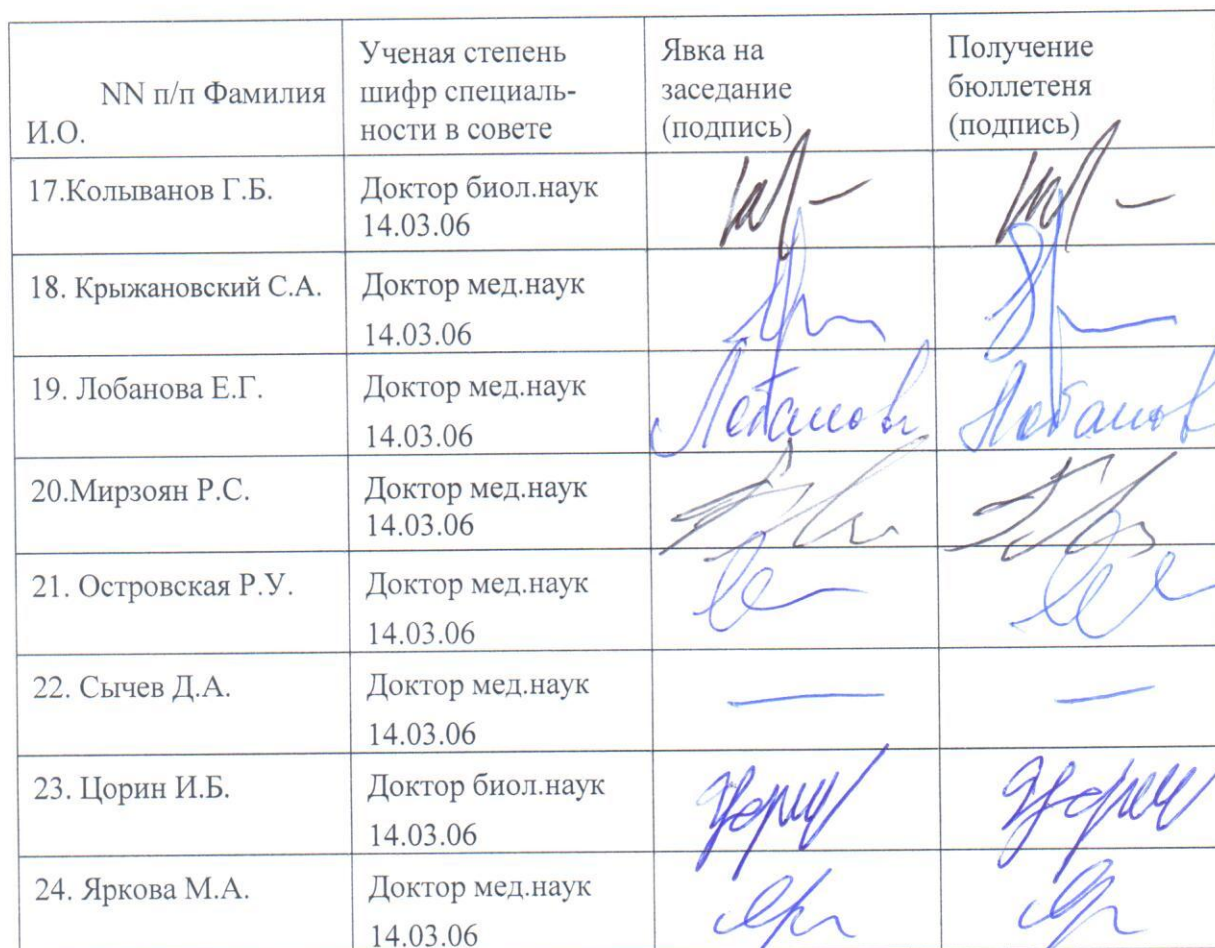 NN п/п Фамилия
И.О.
Ученая степень
шифр специаль-
ности в совете
Явка на
заседание
(подпись)
Получение
бюллетеня
(подпись)
17.Колыванов Г.Б.
Доктор биол.наук
14.03.06
18. Крыжановский С.А.
Доктор мед.наук
14.03.06
19. Лобанова Е.Г.
Доктор мед.наук
14.03.06
20.Мирзоян Р.С.
Доктор мед.наук
14.03.06
21. Островская Р.У.
Доктор мед.наук
14.03.06
22. Сычев Д.А.
Доктор мед.наук
14.03.06
— —
23. Цорин И.Б.
Доктор биол.наук
14.03.06
24. Яркова М.А.
Доктор мед.наук
14.03.06